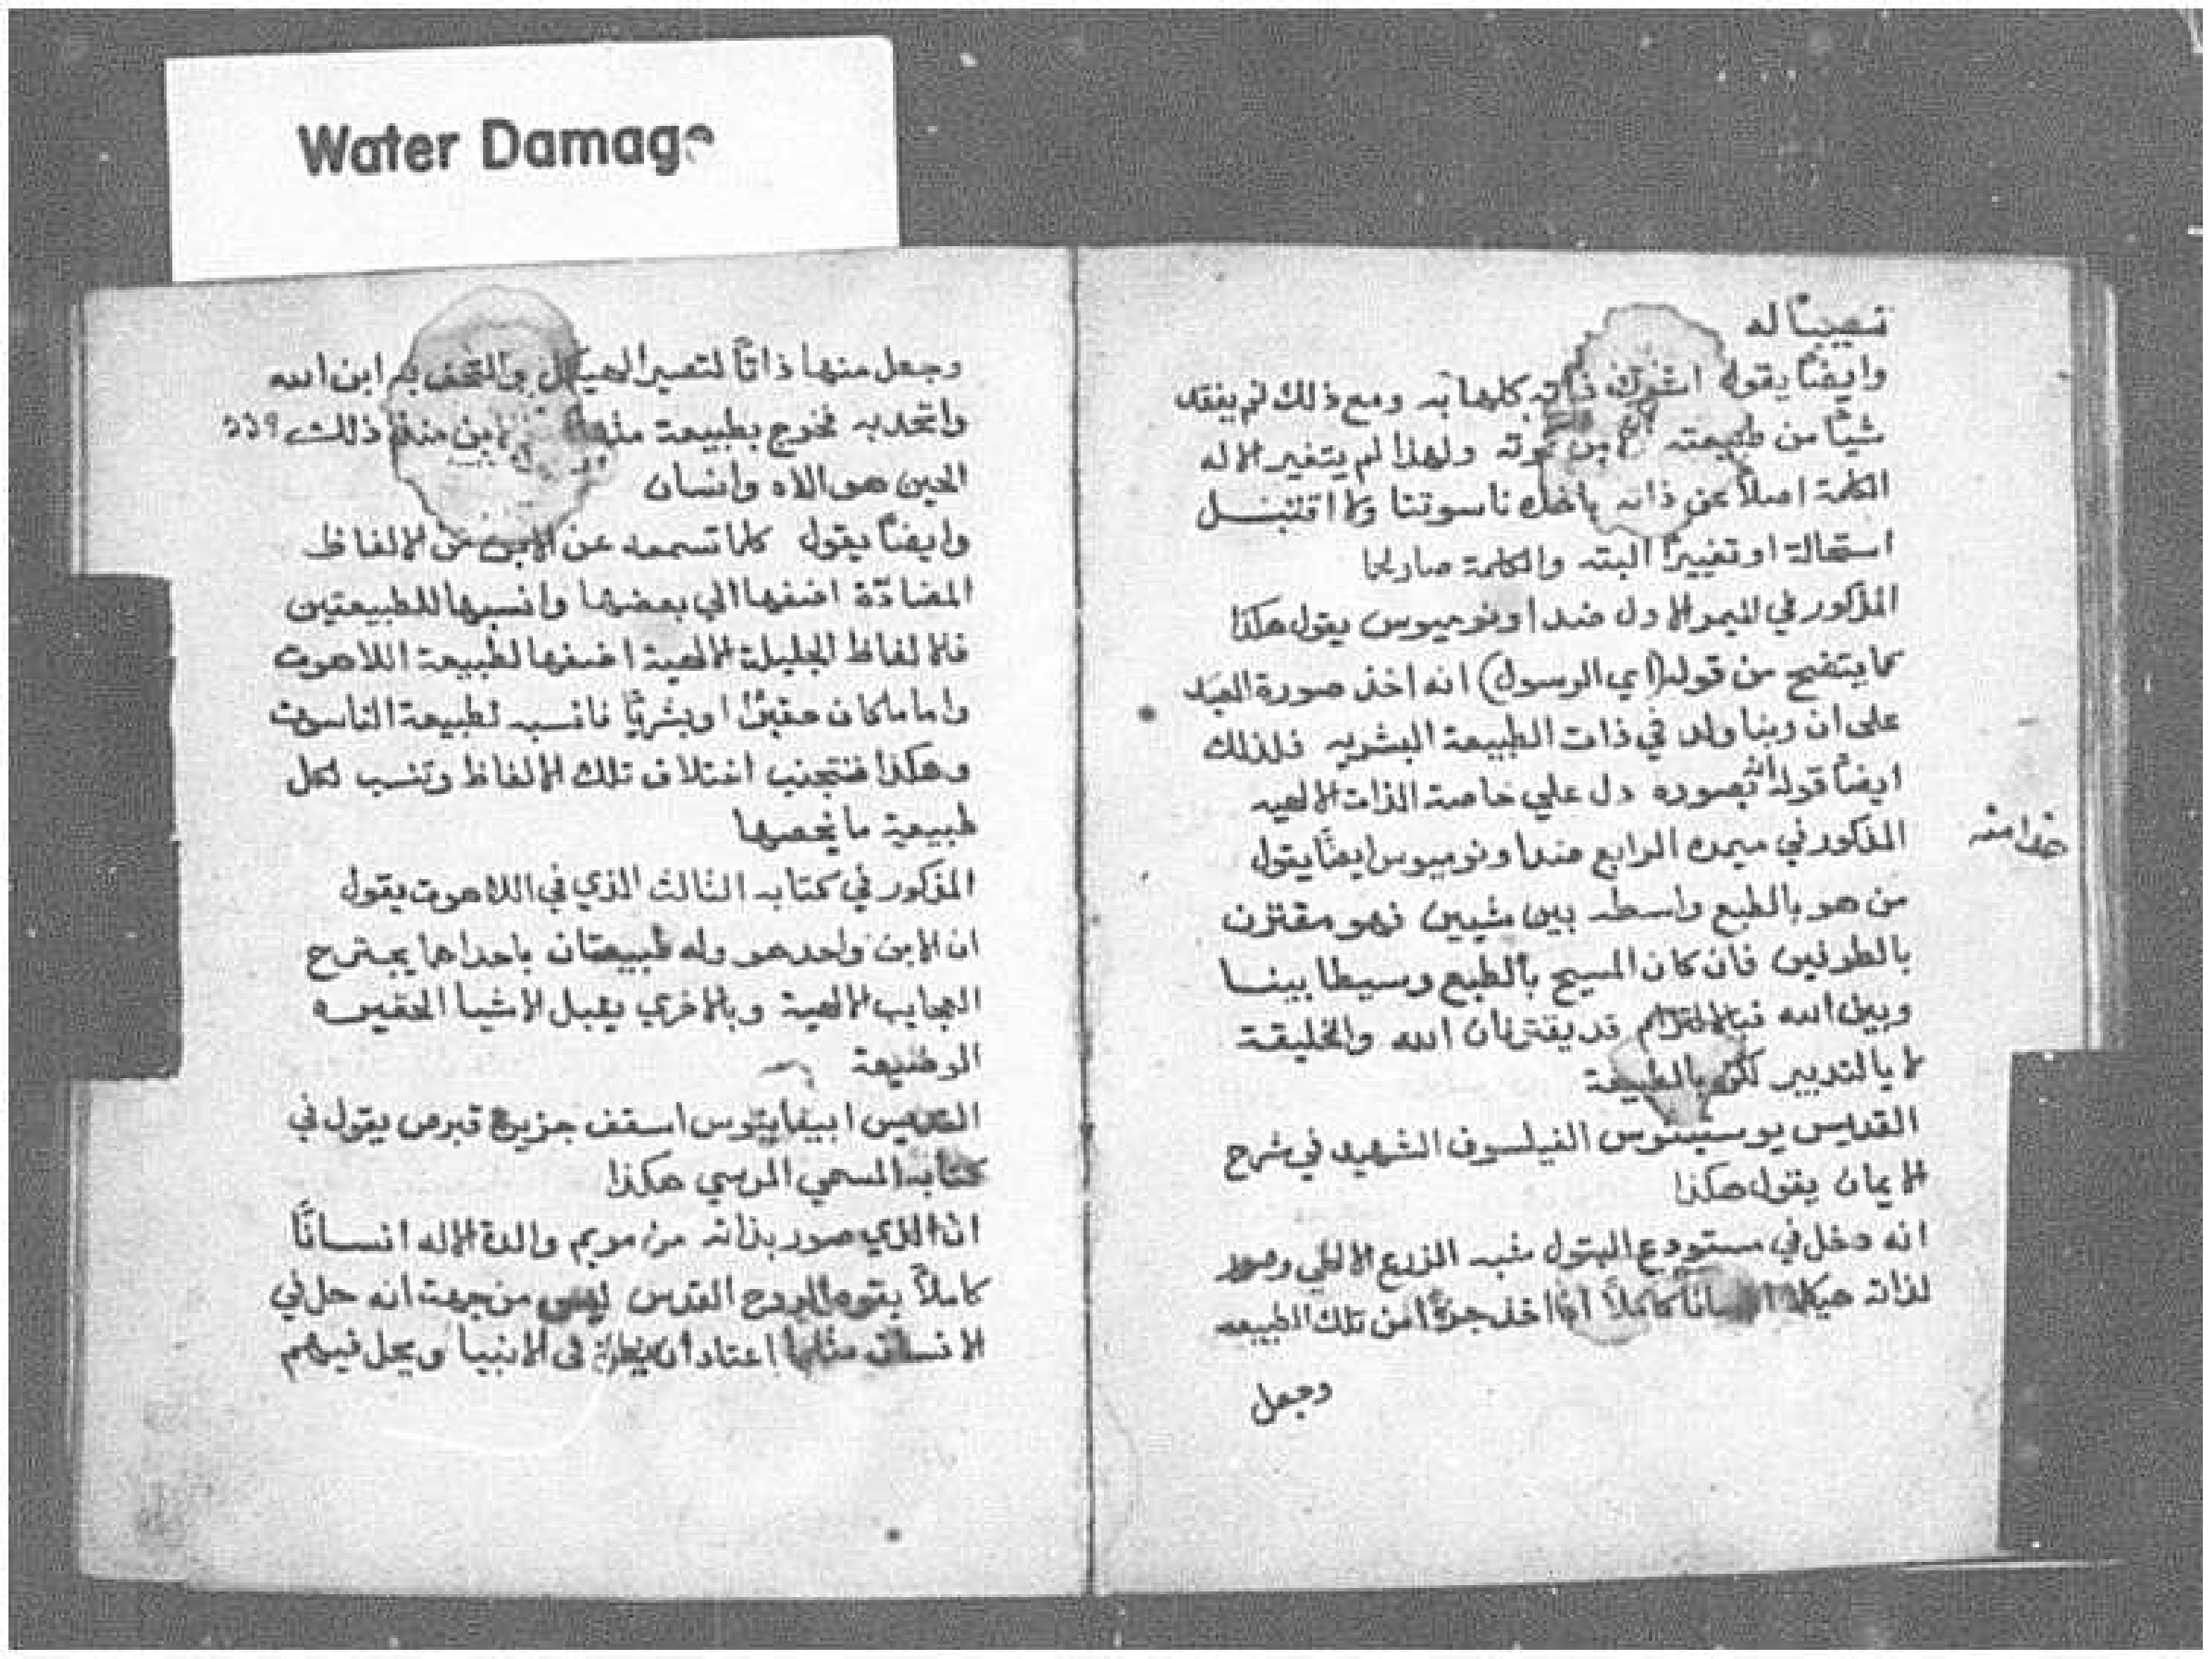 Water Damage
نصيبًا له
وايضًا يقول اشرك ذاته كلها به ومع ذلك لم يفقد
شيًا من طبيعته ولهذا لم يتغير الاله
الكلمة اصلاً عن ذاته باخذه ناسوتنا ولا اقتبل
استحالة او تغييرًا البته والكلمة صار لحما
المذكور في الميمر الاول ضد اونوميوس يقول هكذا
كما يتضح من قوله (اي الرسول) انه اخذ صورة العبد
على ان ربنا ولد في ذات الطبيعة البشريه فلذلك
ايضًا قوله بصورة الله دل علي خاصة الذات الالهيه
المذكور في ميمره الرابع ضد اونوميوس ايضًا يقول
من هو بالطبع واسطه بين شيين فهو مقترن
بالطرفين فان كان المسيح بالطبع وسيطا بيننا
وبين الله فبالالتزام قد يقترنان الله والخليقة
لا بالتدبير لكن بالطبيعة
القديس يوستينوس الفيلسوف الشهيد في شرح
الايمان يقول هكذا
انه دخل في مستودع البتول شبه الزرع الالهي وصور
لذاته هيكلا انسانًا كاملاً اي اخذ جزءًا من تلك الطبيعه
وجعل
وجعل منها ذاتًا لتصير الهيكل والتحف به ابن الله
واتحد به فخرج بطبيعة منذ ذلك
الحين هو الاه وانسان
وايضًا يقول كلما تسمعه عن الابن من الالفاظ
المضادّة اضفها الي بعضها وانسبها للطبيعتين
فالالفاظ الجليلة الالهية اضفها لطبيعة اللاهوت
واما ما كان حقيرًا او بشريًا فانسبه لطبيعة الناسوت
وهكذا فتجنب اختلاف تلك الالفاظ وتنسب لكل
طبيعة ما يخصها
المذكور في كتابه الثالث الذي في اللاهوت يقول
ان الابن واحد هو وله طبيعتان باحداهما يجترح
العجايب الالهية وبالاخري يقبل الاشيا الحقيره
الوضيعة
القديس ابيفانيوس اسقف جزيرة قبرص يقول في
كتابه المسمي المرسي هكذا
ان الذي صور بذاته من مريم والدة الاله انسانًا
كاملاً بقوة الروح القدس ليس من جهت انه حل في
الانسان مثلما اعتاد ان ينطق في الانبيا ويحل فيهم